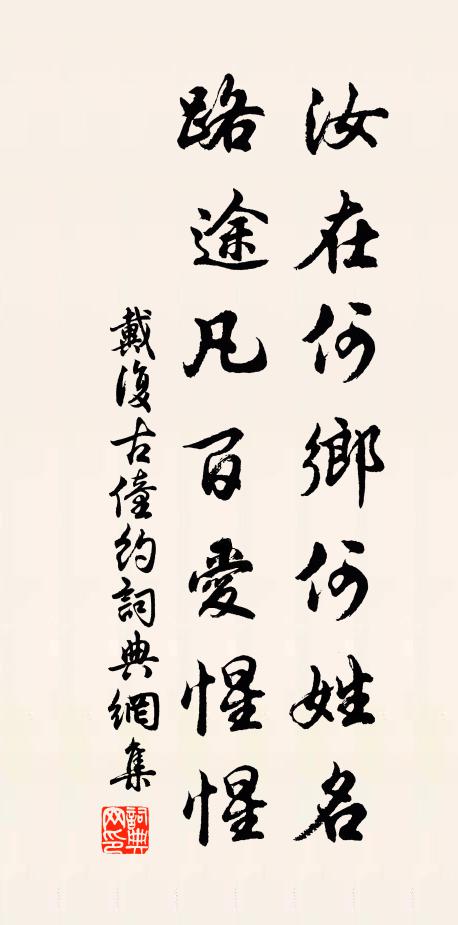 汝在何鄉何姓名
路途凡百愛惺惺
戴復古僮約詞典網集
詞典網印